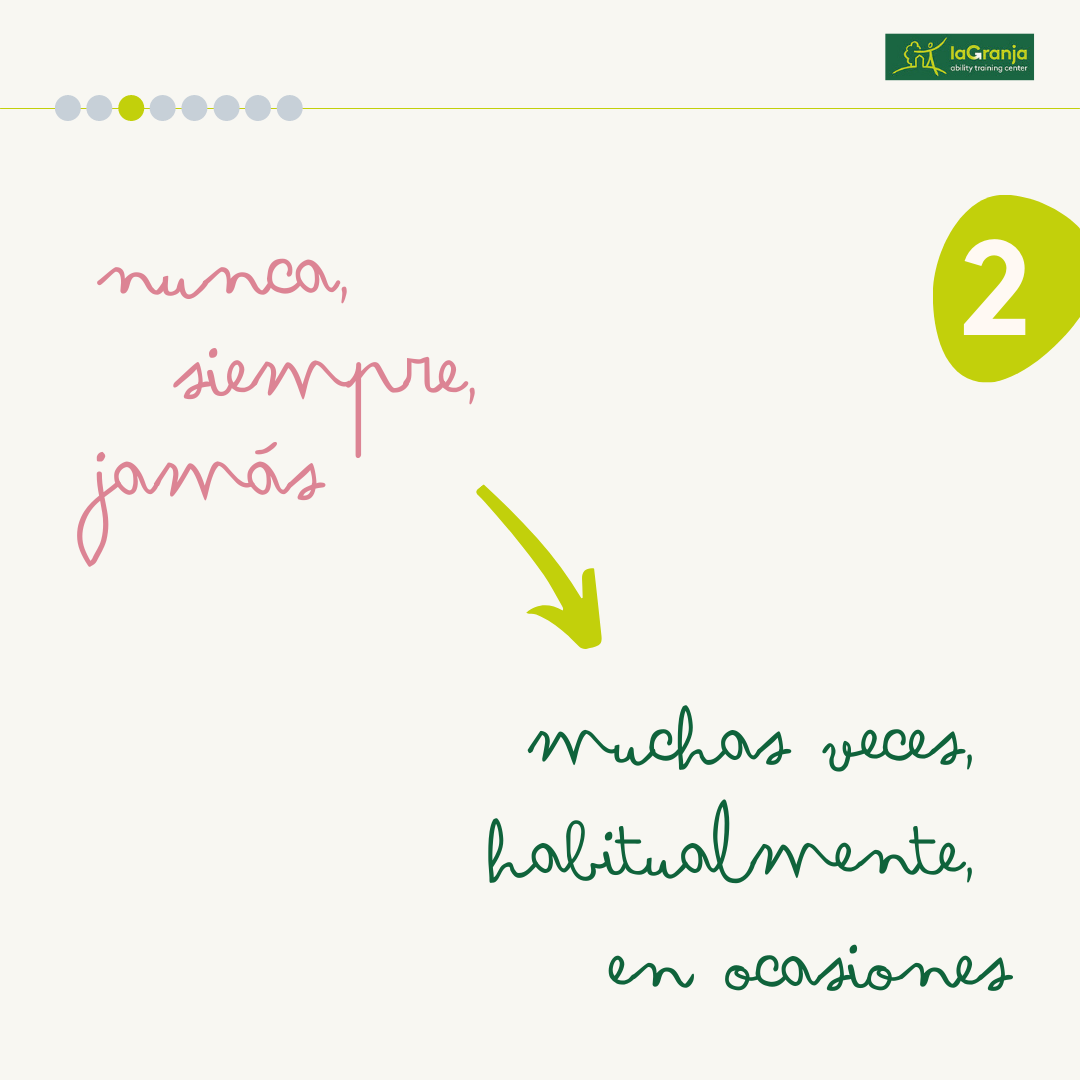 laGranja
ability training center
2
nunca,
siempre,
jamás
muchas veces,
habitualmente,
en ocasiones